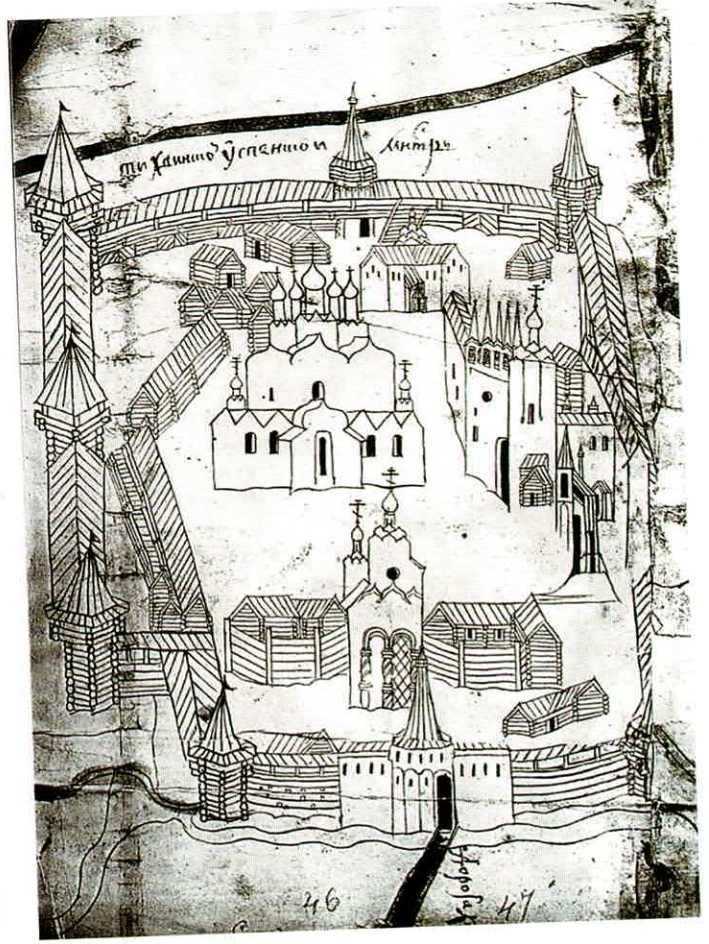 тихвинскои успенскои мнтрь
дорога
46 47